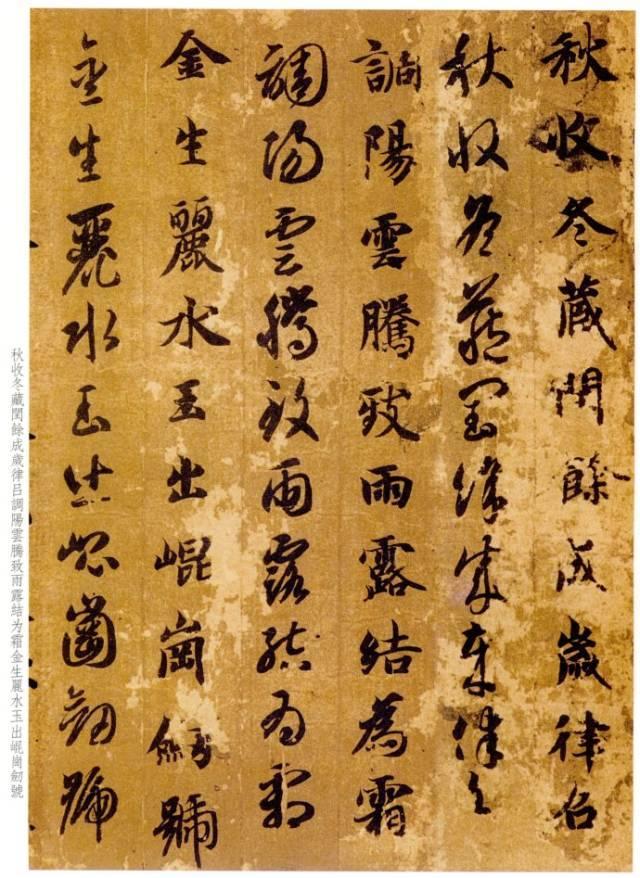 秋收冬藏閏餘成歲律吕
秋收冬藏閏餘成歲律吕
調陽雲騰致雨露結為霜
調陽雲騰致雨露結為霜
金生麗水玉出崐崗劒號
金生麗水玉出崐崗劒號
秋收冬藏閏餘成歲律吕調陽雲騰致雨露結为霜金生麗水玉出崐崗劒號